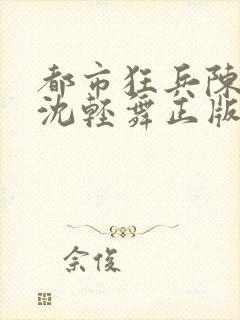 都市狂兵陳
沈輕舞正版
佘俊